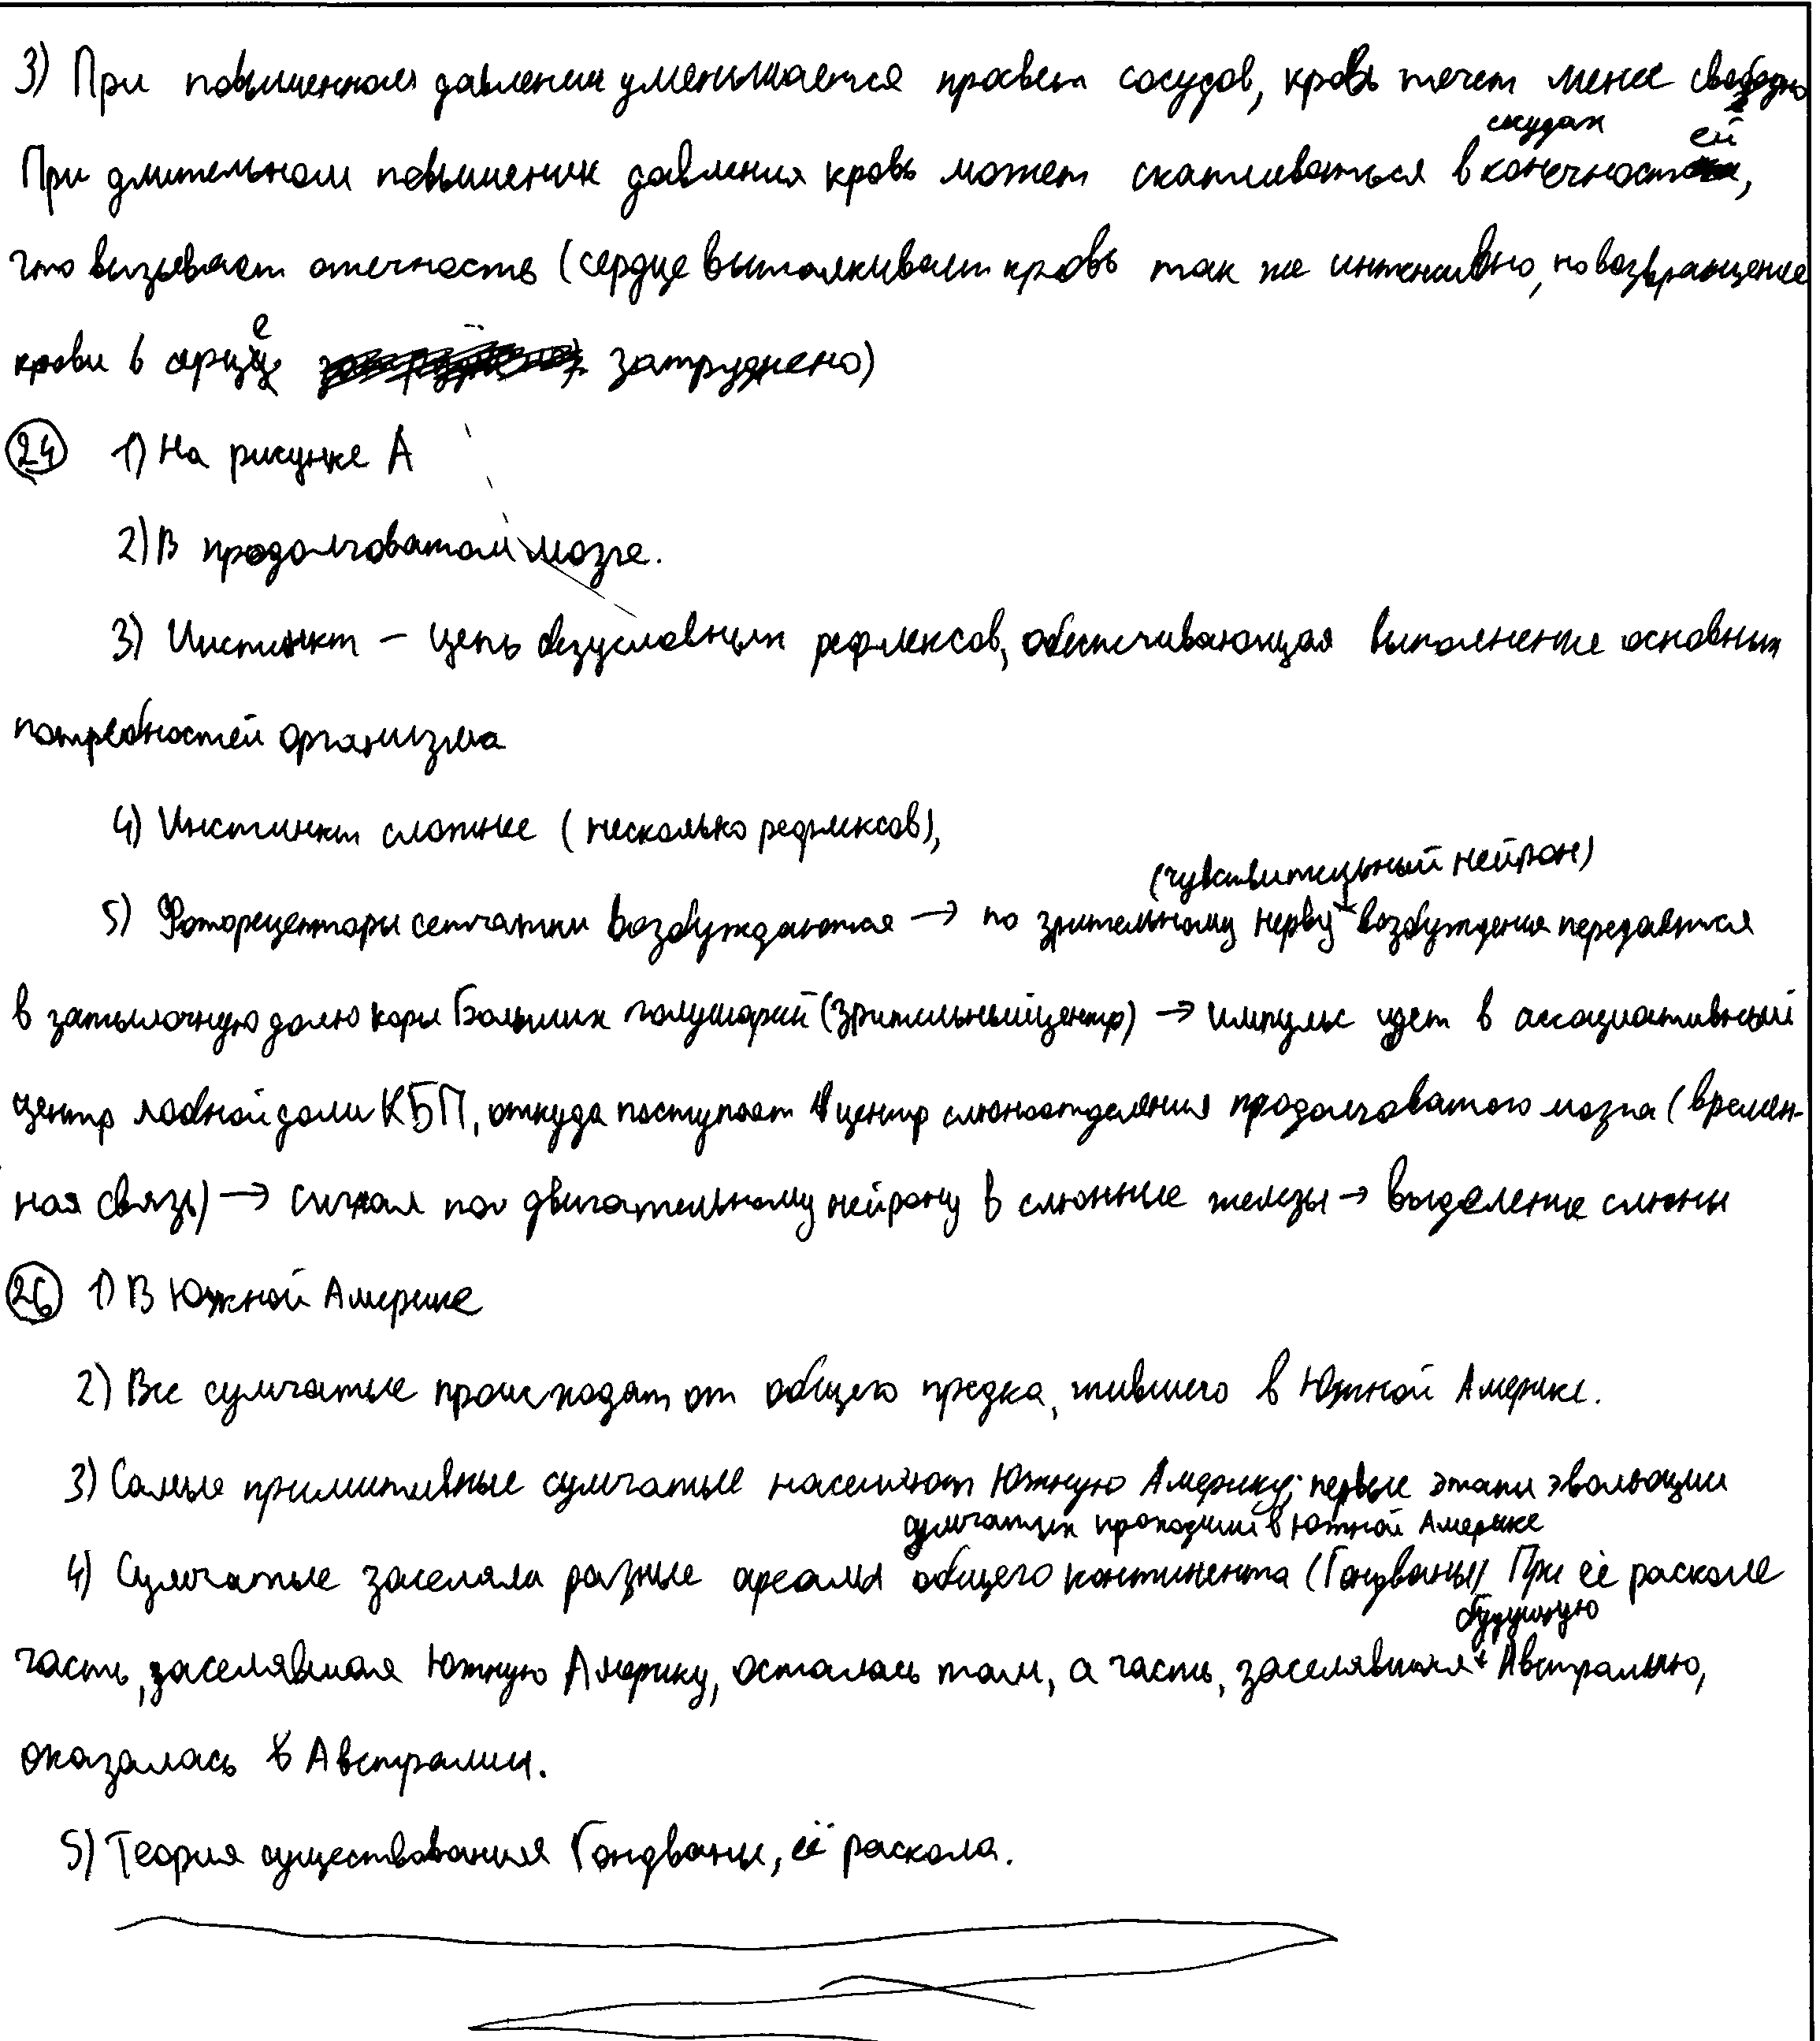 3) При повышенном давлении уменьшается просвет сосудов, кровь течет менее свободно
При длительном повышении давления кровь может скапливаться в сосудах конечностей,
что вызывает отечность (сердце выталкивает кровь так же интенсивно, но возвращение
крови в сердце затруднено)
24 1) На рисунке А
2) В продолговатом мозге.
3) Инстинкт – цепь безусловных рефлексов, обеспечивающая выполнение основных
потребностей организма
4) Инстинкт сложнее (несколько рефлексов),
(чувствительный нейрон)
5) Фоторецепторы сетчатки возбуждаются → по зрительному нерву возбуждения передаются
в затылочную долю коры больших полушарий (зрительный центр) → импульс идет в ассоциативный
центр лобной доли КБП, откуда поступает в центр слюноотделения продолговатого мозга (времен-
ная связь) → сигнал по двигательному нейрону в слюнные железы → выделение слюны
26 1) В Южной Америке
2) Все сумчатые происходят от общего предка, жившего в Южной Америке.
3) Самые примитивные сумчатые населяют Южную Америку; первые этапы эволюции
сумчатых проходили в Южной Америке
4) Сумчатые заселяли разные ареалы общего континента (Гондваны) При её расколе
часть, заселявшая Южную Америку, осталась там, а часть, заселявшая будущую Австралию,
оказалась в Австралии.
5) Теория существования Гондваны, её раскола.